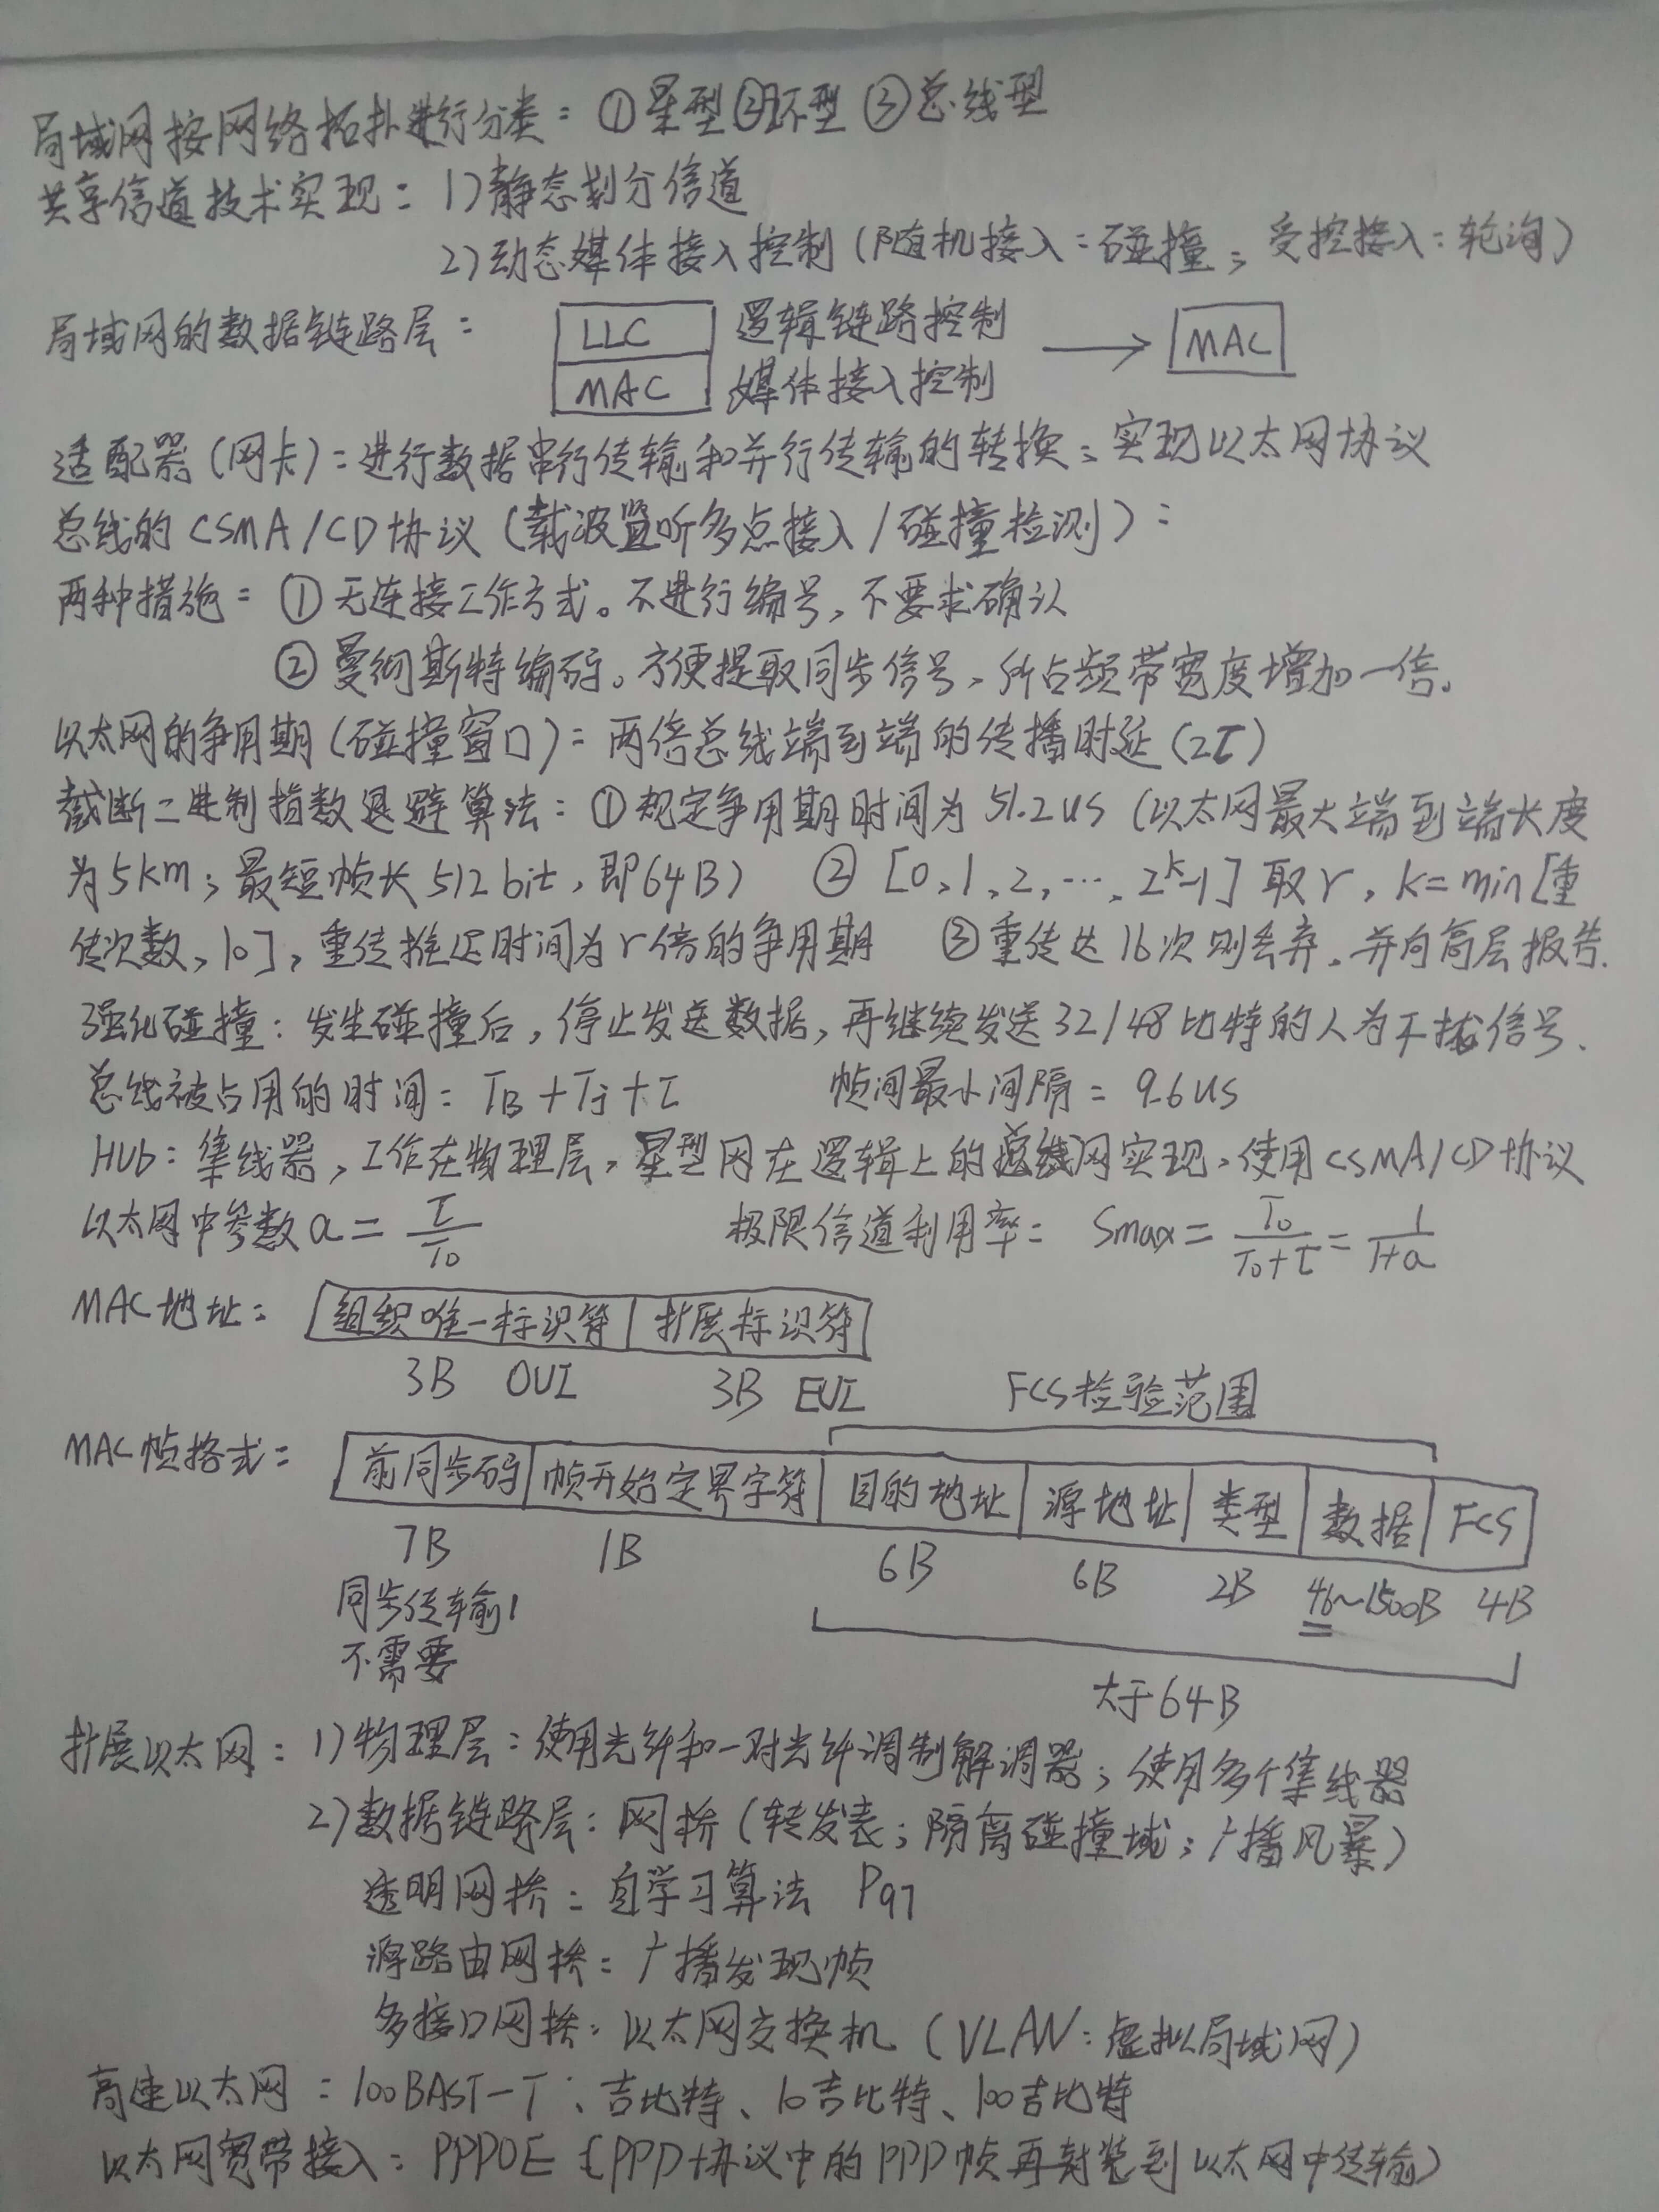 局域网按网络拓扑进行分类：①星型②环型③总线型
共享信道技术实现：1)静态划分信道
2)动态媒体接入控制(随机接入：碰撞；受控接入：轮询)
局域网的数据链路层： LLC 逻辑链路控制 → MAC
MAC 媒体接入控制
适配器(网卡)：进行数据串行传输和并行传输的转换；实现以太网协议
总线的CSMA/CD协议(载波监听多点接入/碰撞检测)：
两种措施：①无连接工作方式。不进行编号，不要求确认
②曼彻斯特编码。方便提取同步信号，所占频带宽度增加一倍。
以太网的争用期(碰撞窗口)：两倍总线端到端的传播时延(2τ)
截断二进制指数退避算法：①规定争用期时间为51.2us(以太网最大端到端长度
为5km；最短帧长512bit，即64B) ②[0,1,2,…,2^k-1]取r，k=min[重
传次数,10]，重传推迟时间为r倍的争用期 ③重传达16次则丢弃。并向高层报告.
强化碰撞：发生碰撞后，停止发送数据，再继续发送32/48比特的人为干扰信号.
总线被占用的时间：TB+TJ+τ 帧间最小间隔：9.6us
Hub：集线器，工作在物理层，星型网在逻辑上的总线网实现，使用CSMA/CD协议
以太网中参数a=τ/T0 极限信道利用率：Smax=T0/(T0+τ)=1/(1+a)
MAC地址： 组织唯一标识符 扩展标识符
3B OUI 3B EUI FCS检验范围
MAC帧格式： 前同步码 帧开始定界字符 目的地址 源地址 类型 数据 FCS
7B 1B 6B 6B 2B 46~1500B 4B
同步传输
不需要
大于64B
扩展以太网：1)物理层：使用光纤和一对光纤调制解调器；使用多个集线器
2)数据链路层：网桥(转发表；隔离碰撞域；广播风暴)
透明网桥：自学习算法 P97
源路由网桥：广播发现帧
多接口网桥：以太网交换机(VLAN：虚拟局域网)
高速以太网：100BAST-T、吉比特、10吉比特、100吉比特
以太网宽带接入：PPPOE(PPP协议中的PPP帧再封装到以太网中传输)